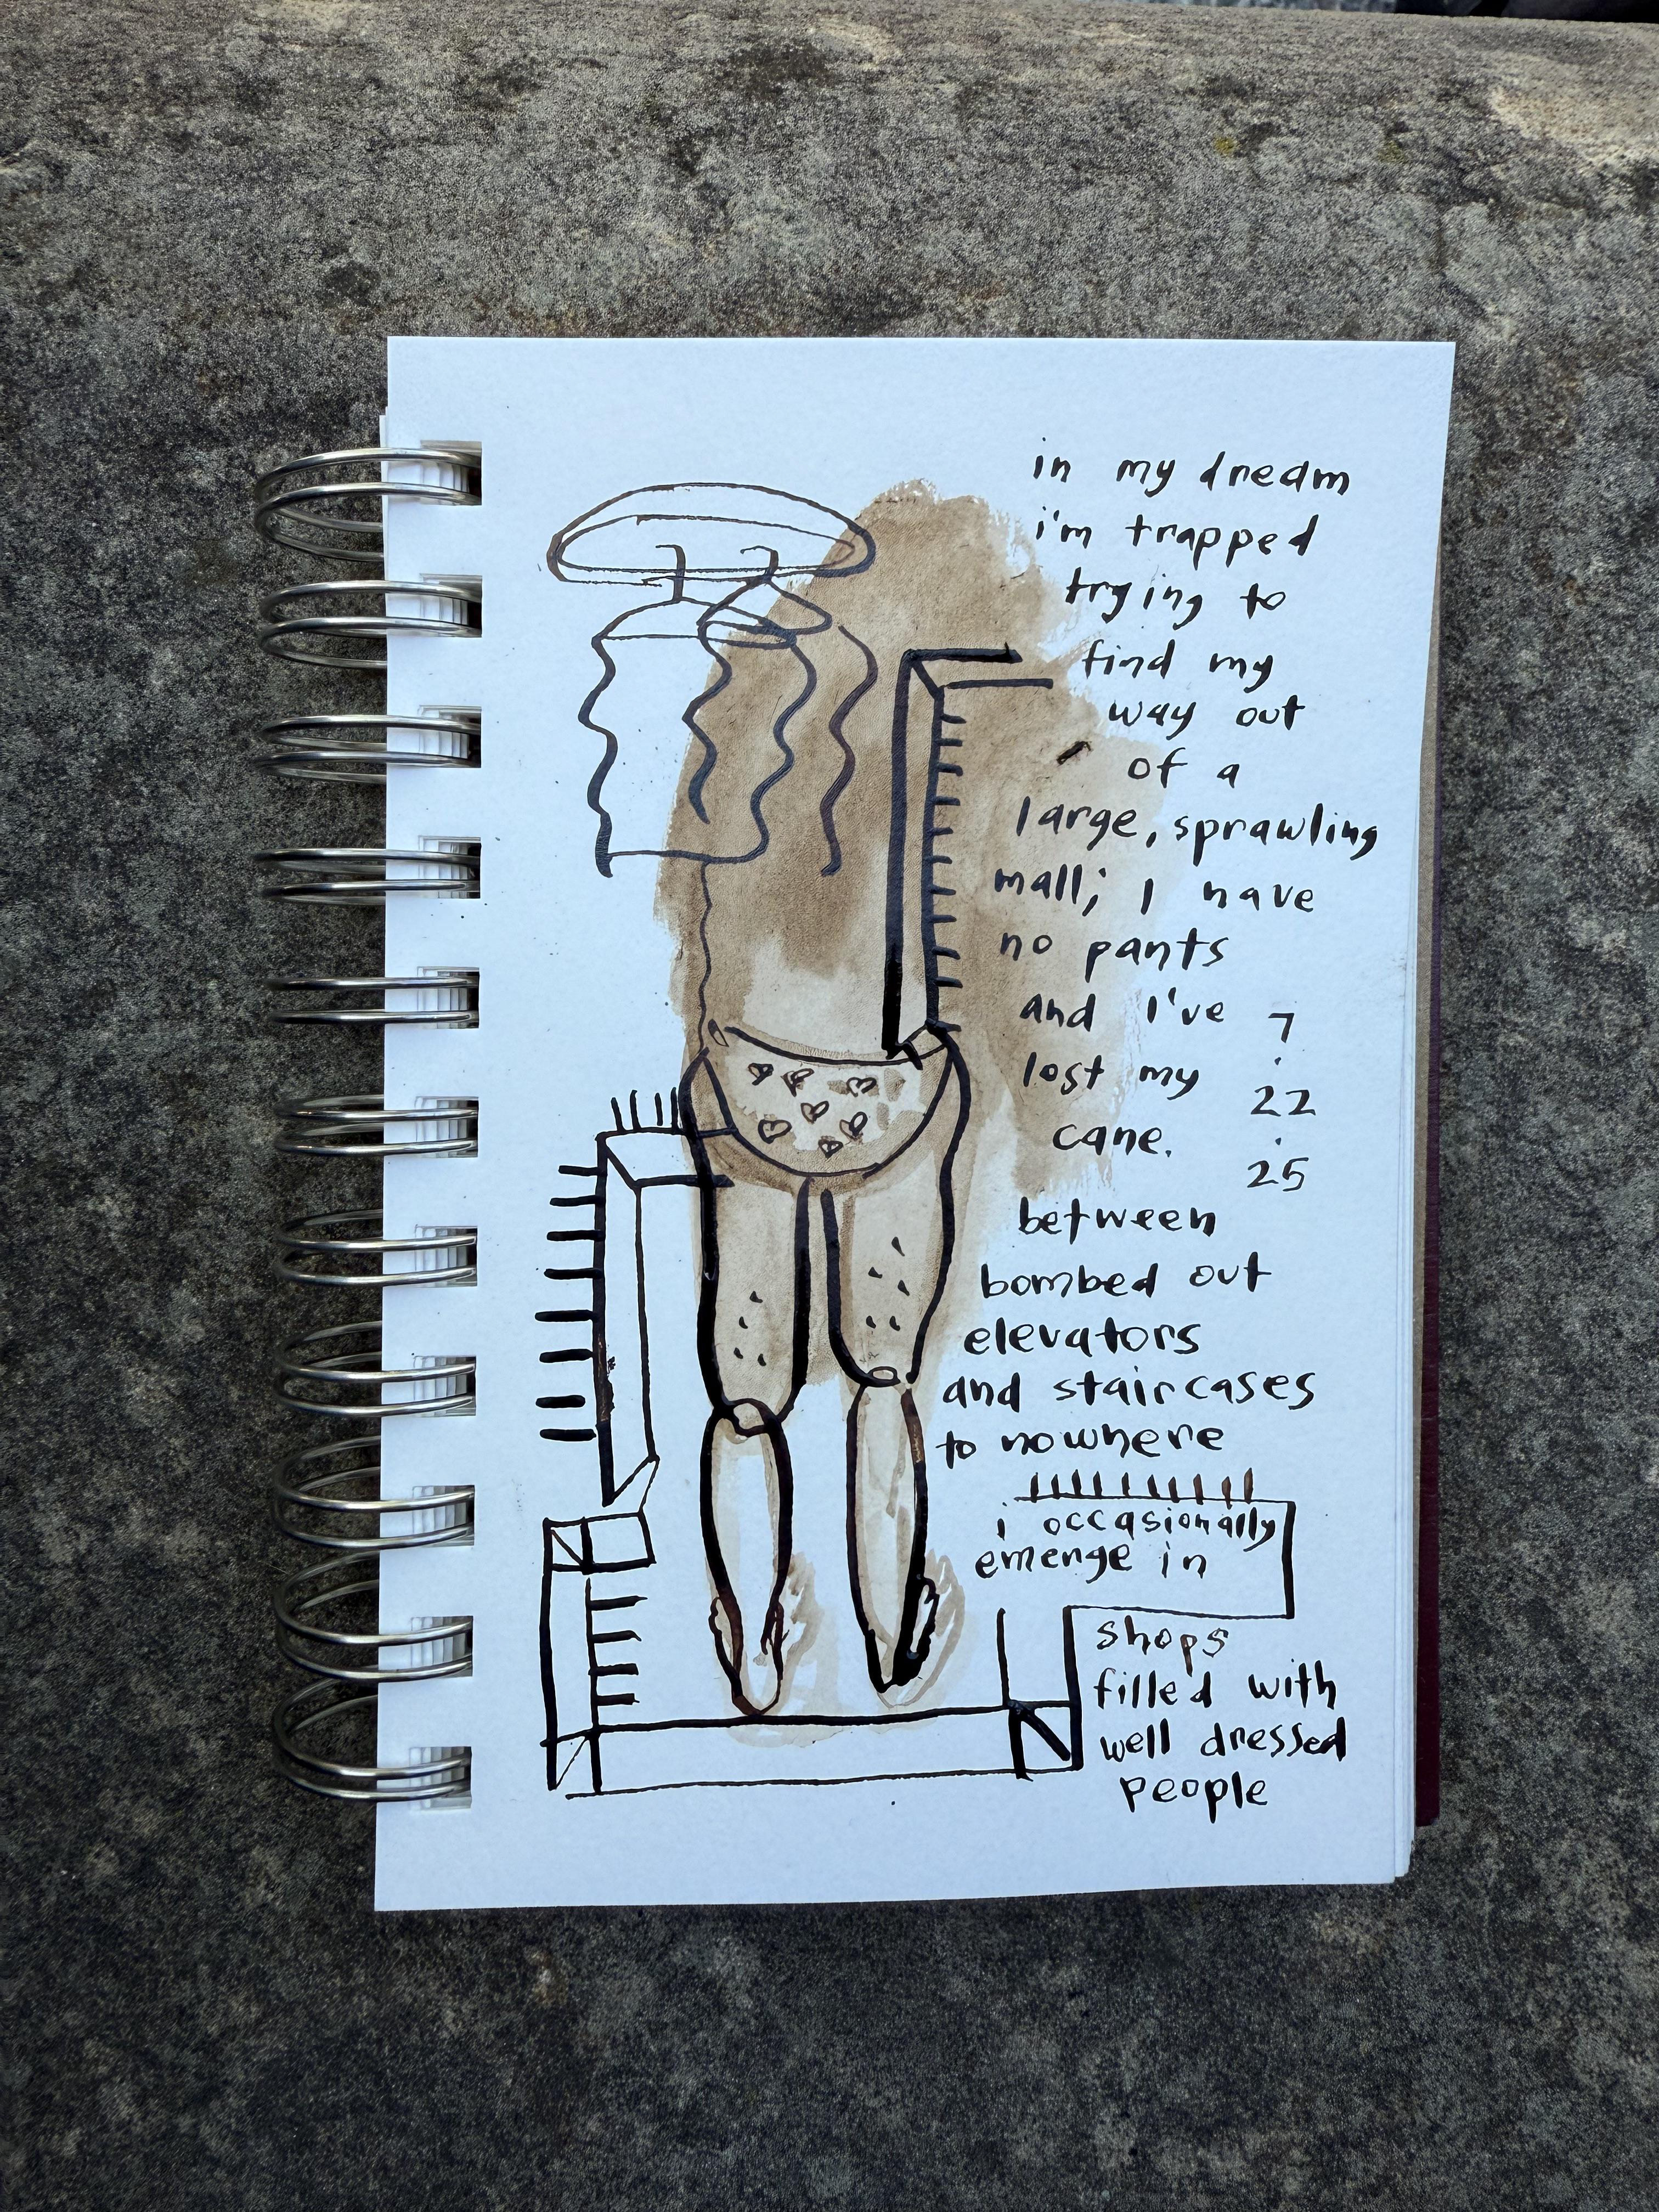 in my dream
i'm trapped
trying to
find my
way out
of a
large, sprawling
mall; I have
no pants
and I've
lost my
cane.
7
.
22
.
25
between
bombed out
elevators
and staircases
to nowhere
i occasionally
emerge in
shops
filled with
well dressed
people